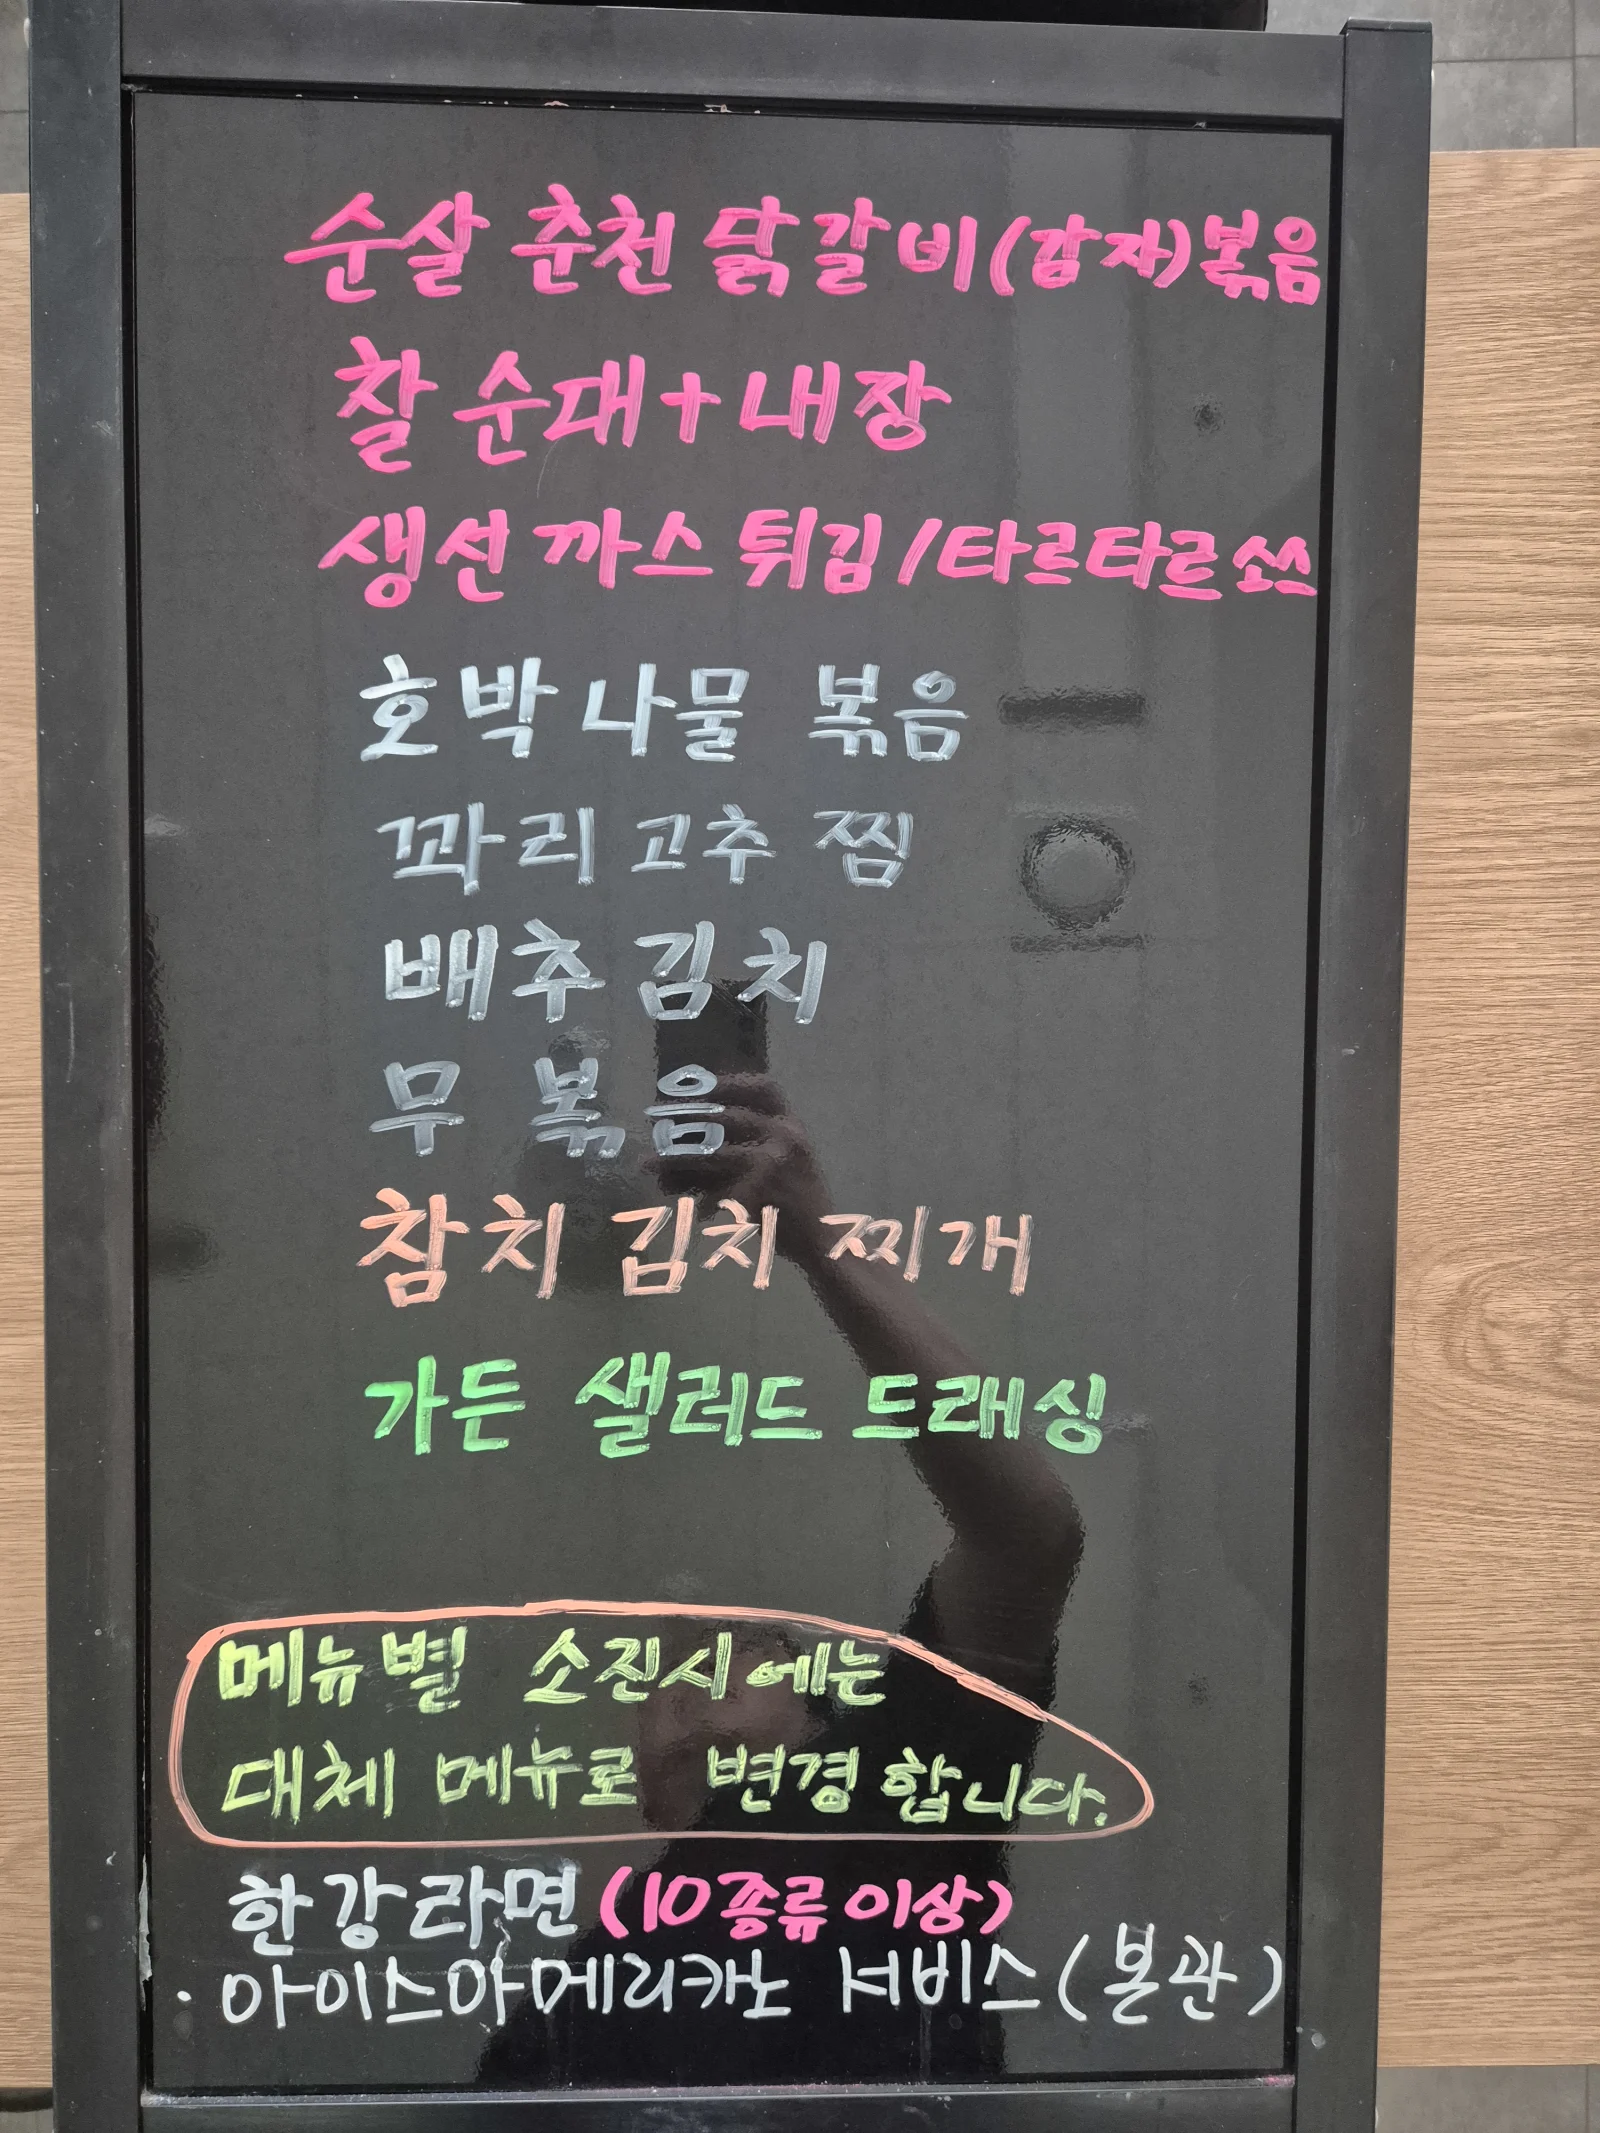 순살 춘천 닭갈비(감자)볶음
찰순대+내장
생선까스 튀김/타르타르소스
호박나물 볶음
꽈리고추 찜
배추김치
무 볶음
참치 김치 찌개
가든 샐러드 드래싱
메뉴별 소진시에는
대체 메뉴로 변경합니다.
한강라면(10종류이상)
·아이스아메리카노 서비스(본관)